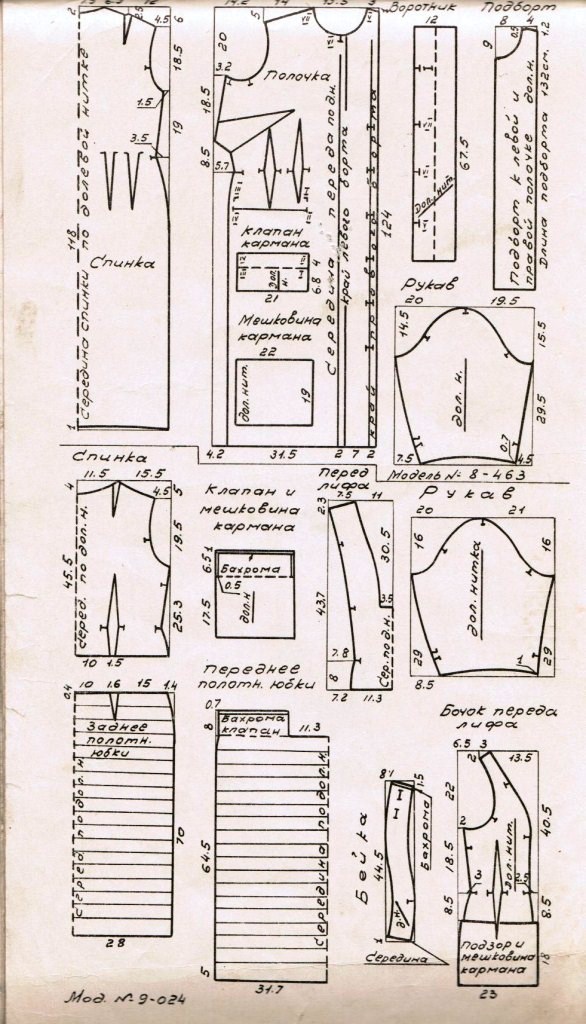 12
4.5
6
18.5
1.5
19
3.5
118
Середина спинки по долевой нитке
Спинка
1
14.2
5
14
13.5
3
20
3.2
Полочка
18.5
8.5
5.7
Клапан
кармана
дол.
н.
21
6.8
4
Мешковина
кармана
22
дол.нит.
19
Середина переда по д.н.
край левого борта
край правого борта
124
4.2
31.5
2
7
2
Воротник
12
Дол.нит.
67.5
Подборт
8
4
1.2
9
0.5
Подборт к левой и
правой полочке дол.н.
Длина подборта 132см.
Рукав
20
19.5
14.5
15.5
дол.н.
29.5
7.5
0.7
4.5
Модель № 8-463
Спинка
4
11.5
15.5
4.5
5
19.5
45.5
серед. по дол.н.
25.3
10
1.5
Клапан и
мешковина
кармана
6.5
1
Бахрома
0.5
17.5
дол.н
Перед
лифа
7.5
11
2.3
30.5
43.7
3.5
Сер.по д.н.
7.8
8
7.2
11.3
Рукав
20
21
16
16
дол.нитка
29
1
29
8.5
0.4
10
1.6
15
1.4
Заднее
полотн.
юбки
Серед по дол.н
70
28
Переднее
полотн. юбки
0.7
8
Бахрома
клапан
11.3
64.5
Середина по дол.н.
5
31.7
Бейка
8
1
1.5
Бахрома
44.5
д.н.
1
Середина
Бочок переда
лифа
6.5
3
2
13.5
22
2
40.5
18.5
дол.нит.
3
2.5
8.5
8.5
Подзор и
мешковина
кармана
18
23
Мод. № 9-024